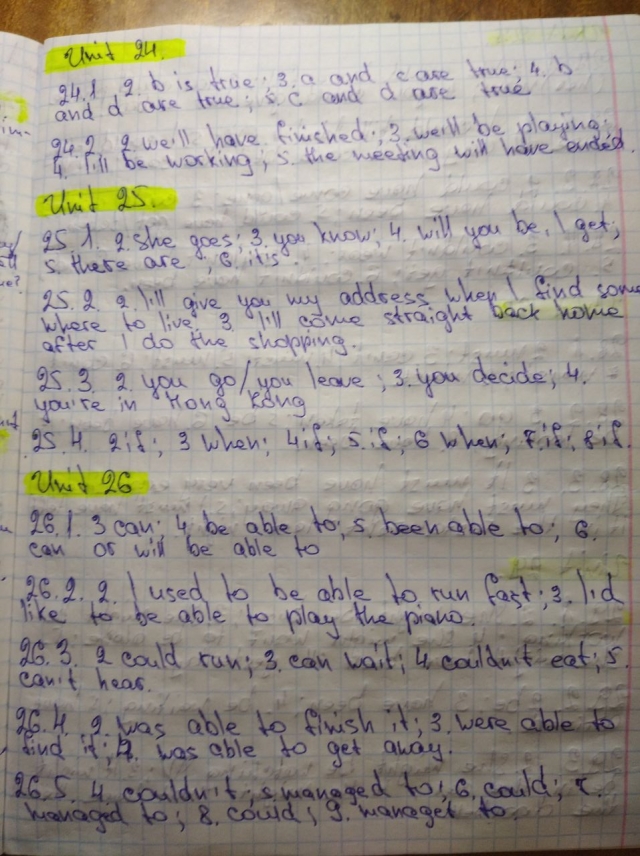 Unit 24.
24.1 2. b is true; 3. a and c are true; 4. b
and d are true; 5. c and d are true
24.2 2. we'll have finished; 3. we'll be playing;
4. I'll be working; 5. the meeting will have ended.
Unit 25.
25.1. 2. she goes; 3. you know; 4. will you be, I get;
5. there are; 6. it's
25.2. 2. I'll give you my address when I find some
where to live. 3. I'll come straight back home
after I do the shopping.
25.3. 2. you go/you leave; 3. you decide; 4.
you're in Hong Kong
25.4. 2 if; 3 when; 4 if; 5. if; 6 when; 7. if; 8 if.
Unit 26
26.1. 3 can; 4 be able to; 5. been able to; 6.
can or will be able to
26.2. 2. I used to be able to run fast; 3. I'd
like to be able to play the piano.
26.3. 2 could run; 3. can wait; 4 couldn't eat; 5.
can't hear.
26.4. 2. was able to finish it; 3. were able to
find it; 4. was able to get away.
26.5. 4. couldn't; 5. managed to; 6. could; 7.
managed to; 8. could; 9. managet to.